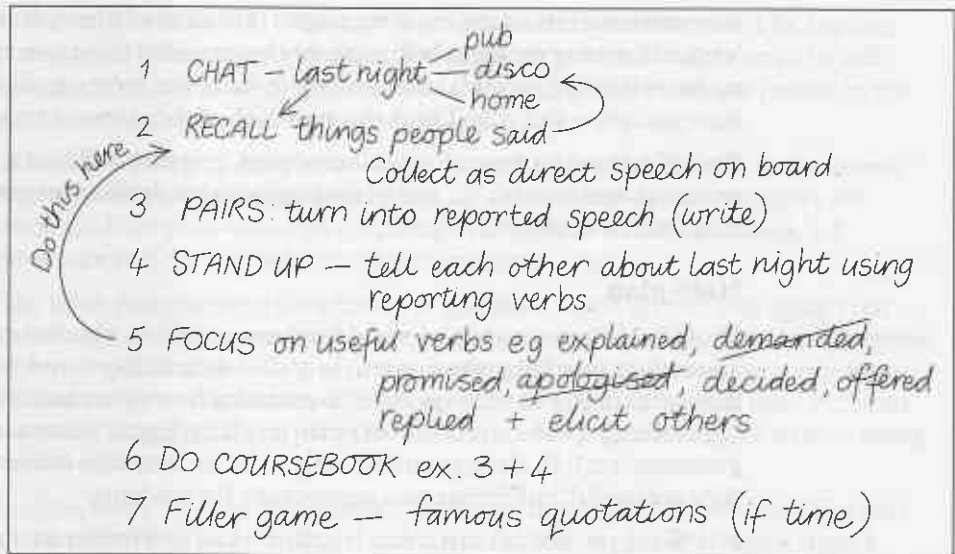 pub
1 CHAT – last night – disco
home
2 RECALL things people said
Do this here
Collect as direct speech on board.
3 PAIRS: turn into reported speech (write)
4 STAND UP – tell each other about last night using
reporting verbs
5 FOCUS on useful verbs eg explained, demanded,
promised, apologised, decided, offered
replied + elicit others
6 DO COURSEBOOK ex. 3 + 4
7 Filler game – famous quotations (if time)